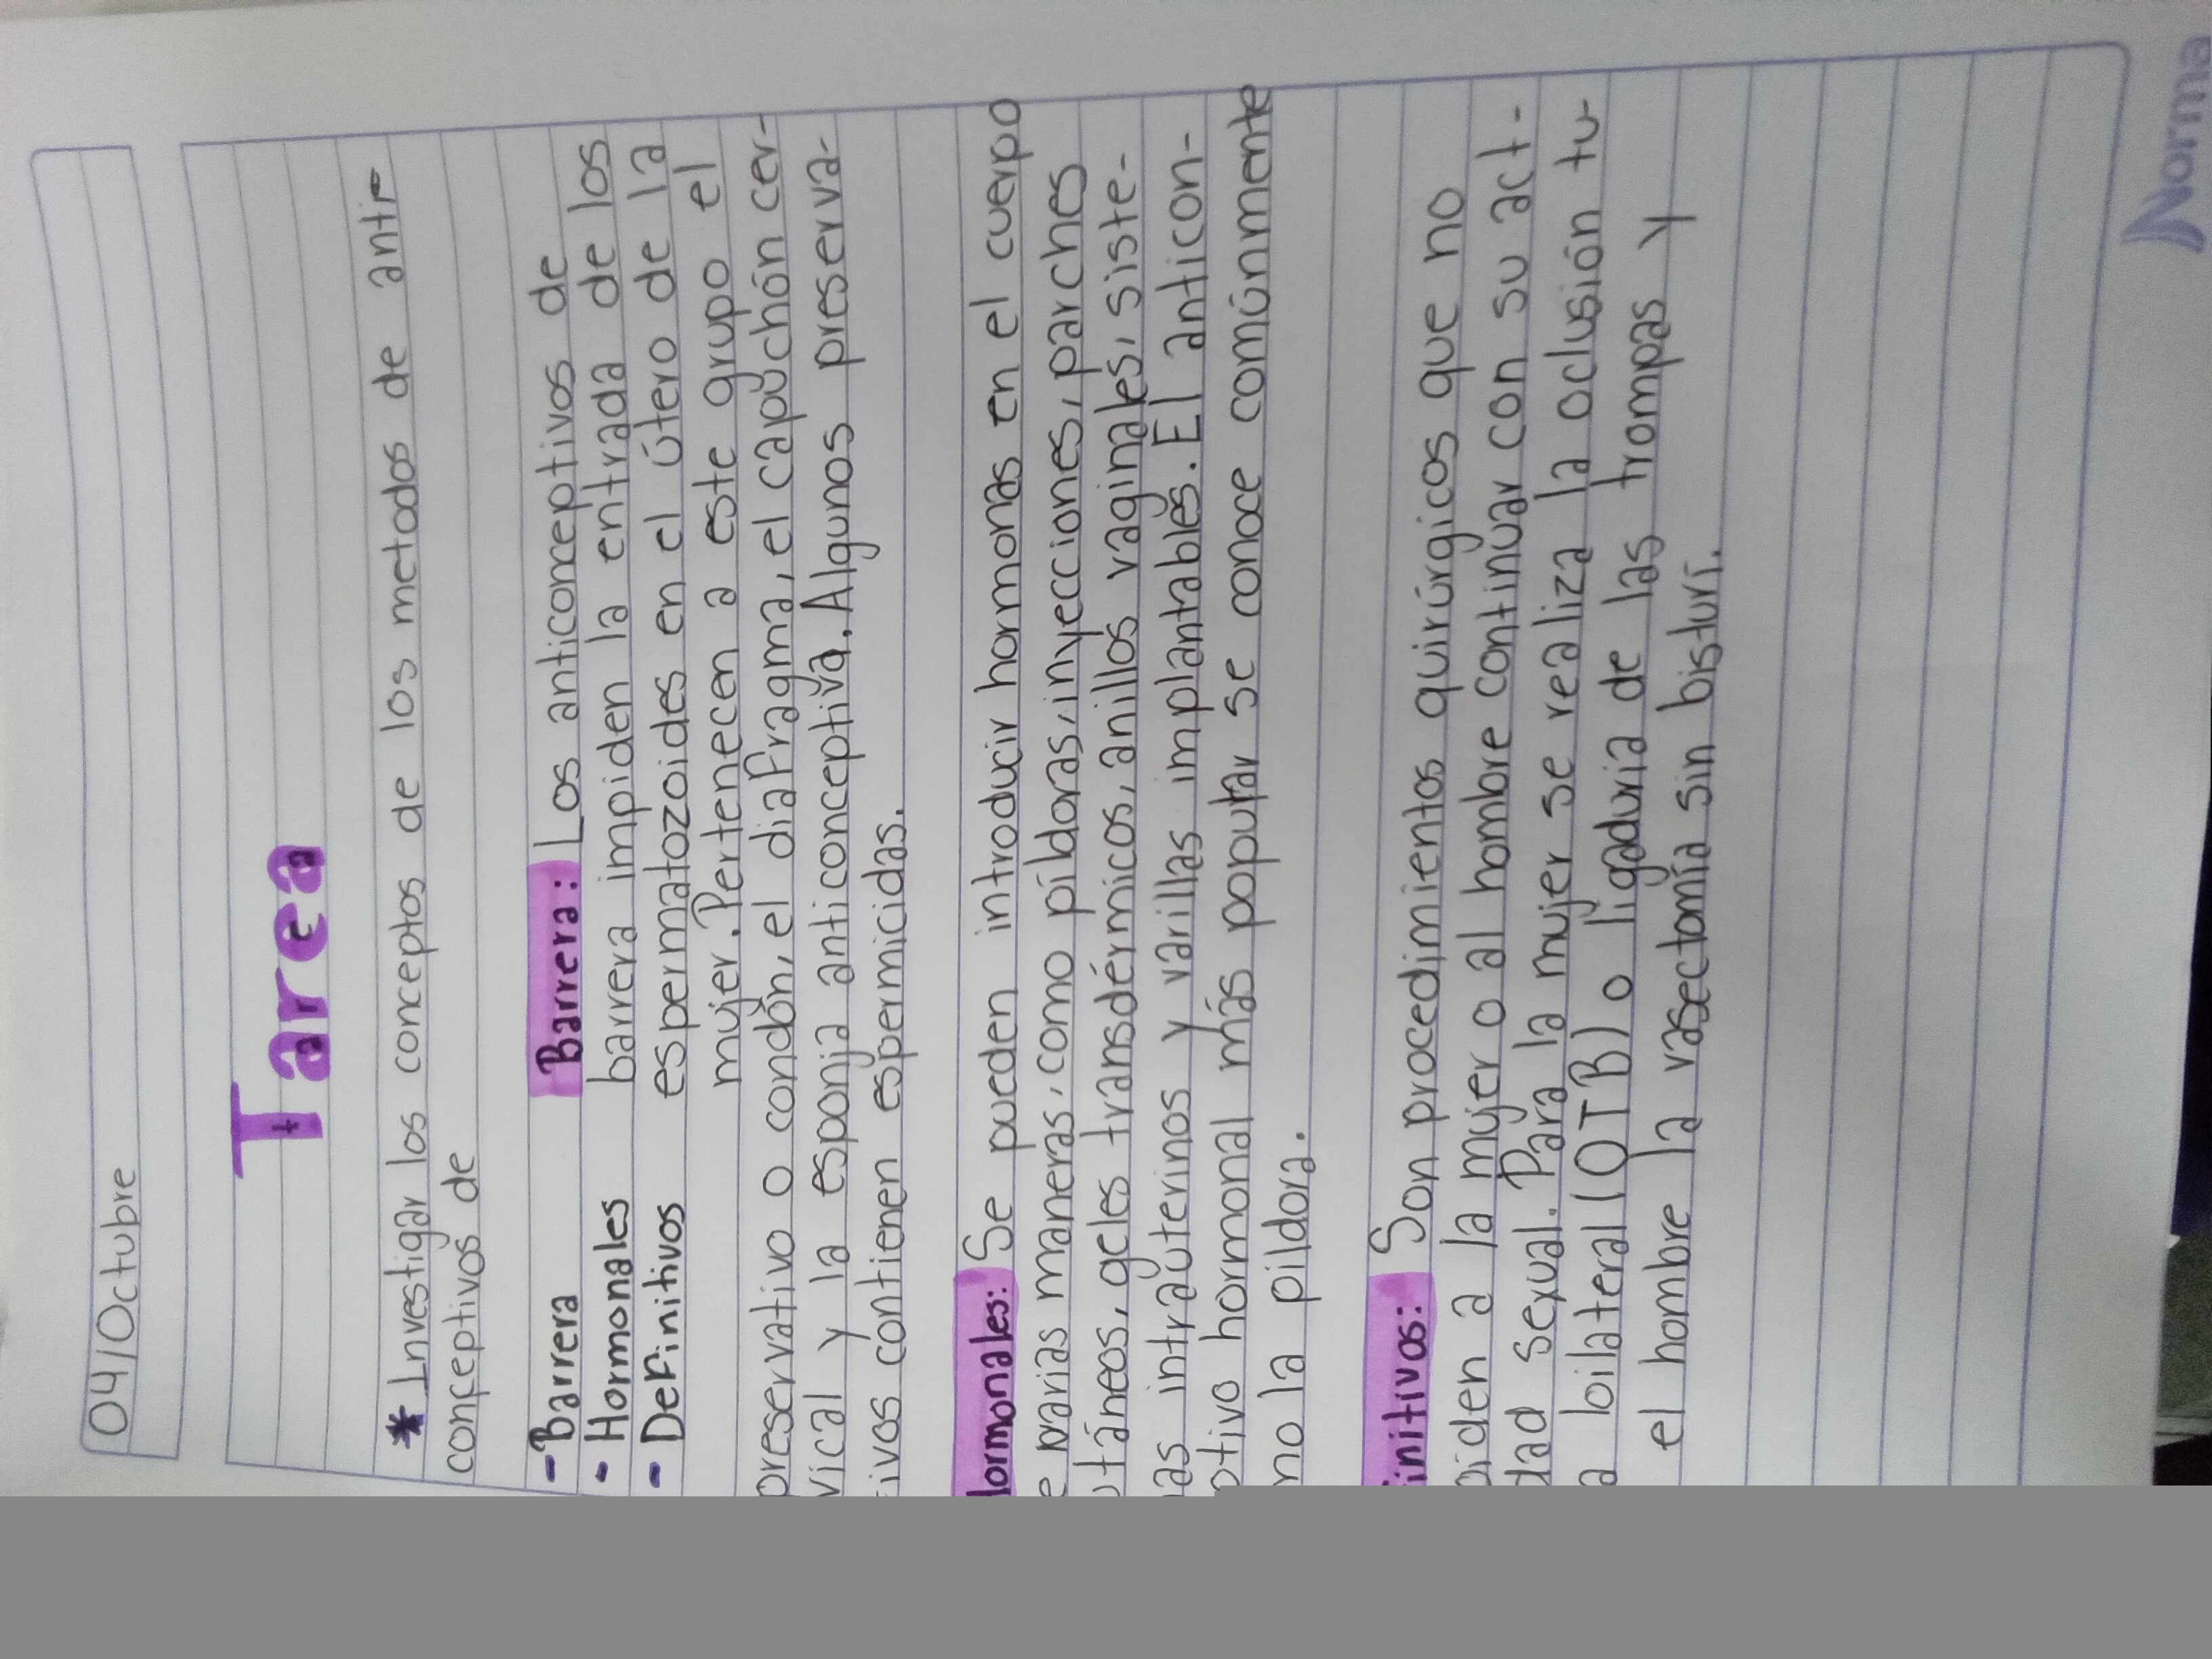 04/Octubre
Tarea
* Investigar los conceptos de los metodos de anti-
conceptivos de
- Barrera
- Hormonales
- Definitivos
Barrera: Los anticonceptivos de
barrera impiden la entrada de los
espermatozoides en el útero de la
mujer. Pertenecen a este grupo el
preservativo o condón, el diafragma, el capuchón cer-
vical y la esponja anticonceptiva. Algunos preserva-
ivos contienen espermicidas.
lormonales: Se pueden introducir hormonas en el cuerpo
e varias maneras, como píldoras, inyecciones, parches
utáneos, geles transdérmicos, anillos vaginales, siste-
as intrauterinos y varillas implantables. El anticon-
ptivo hormonal más popular se conoce comúnmente
no la pildora.
initivos: Son procedimientos quirúrgicos que no
piden a la mujer o al hombre continuar con su act-
dad sexual. Para la mujer se realiza la oclusión tu-
a bilateral (OTB) o ligaduria de las trompas y
el hombre la vasectomía sin bisturí.
Norma